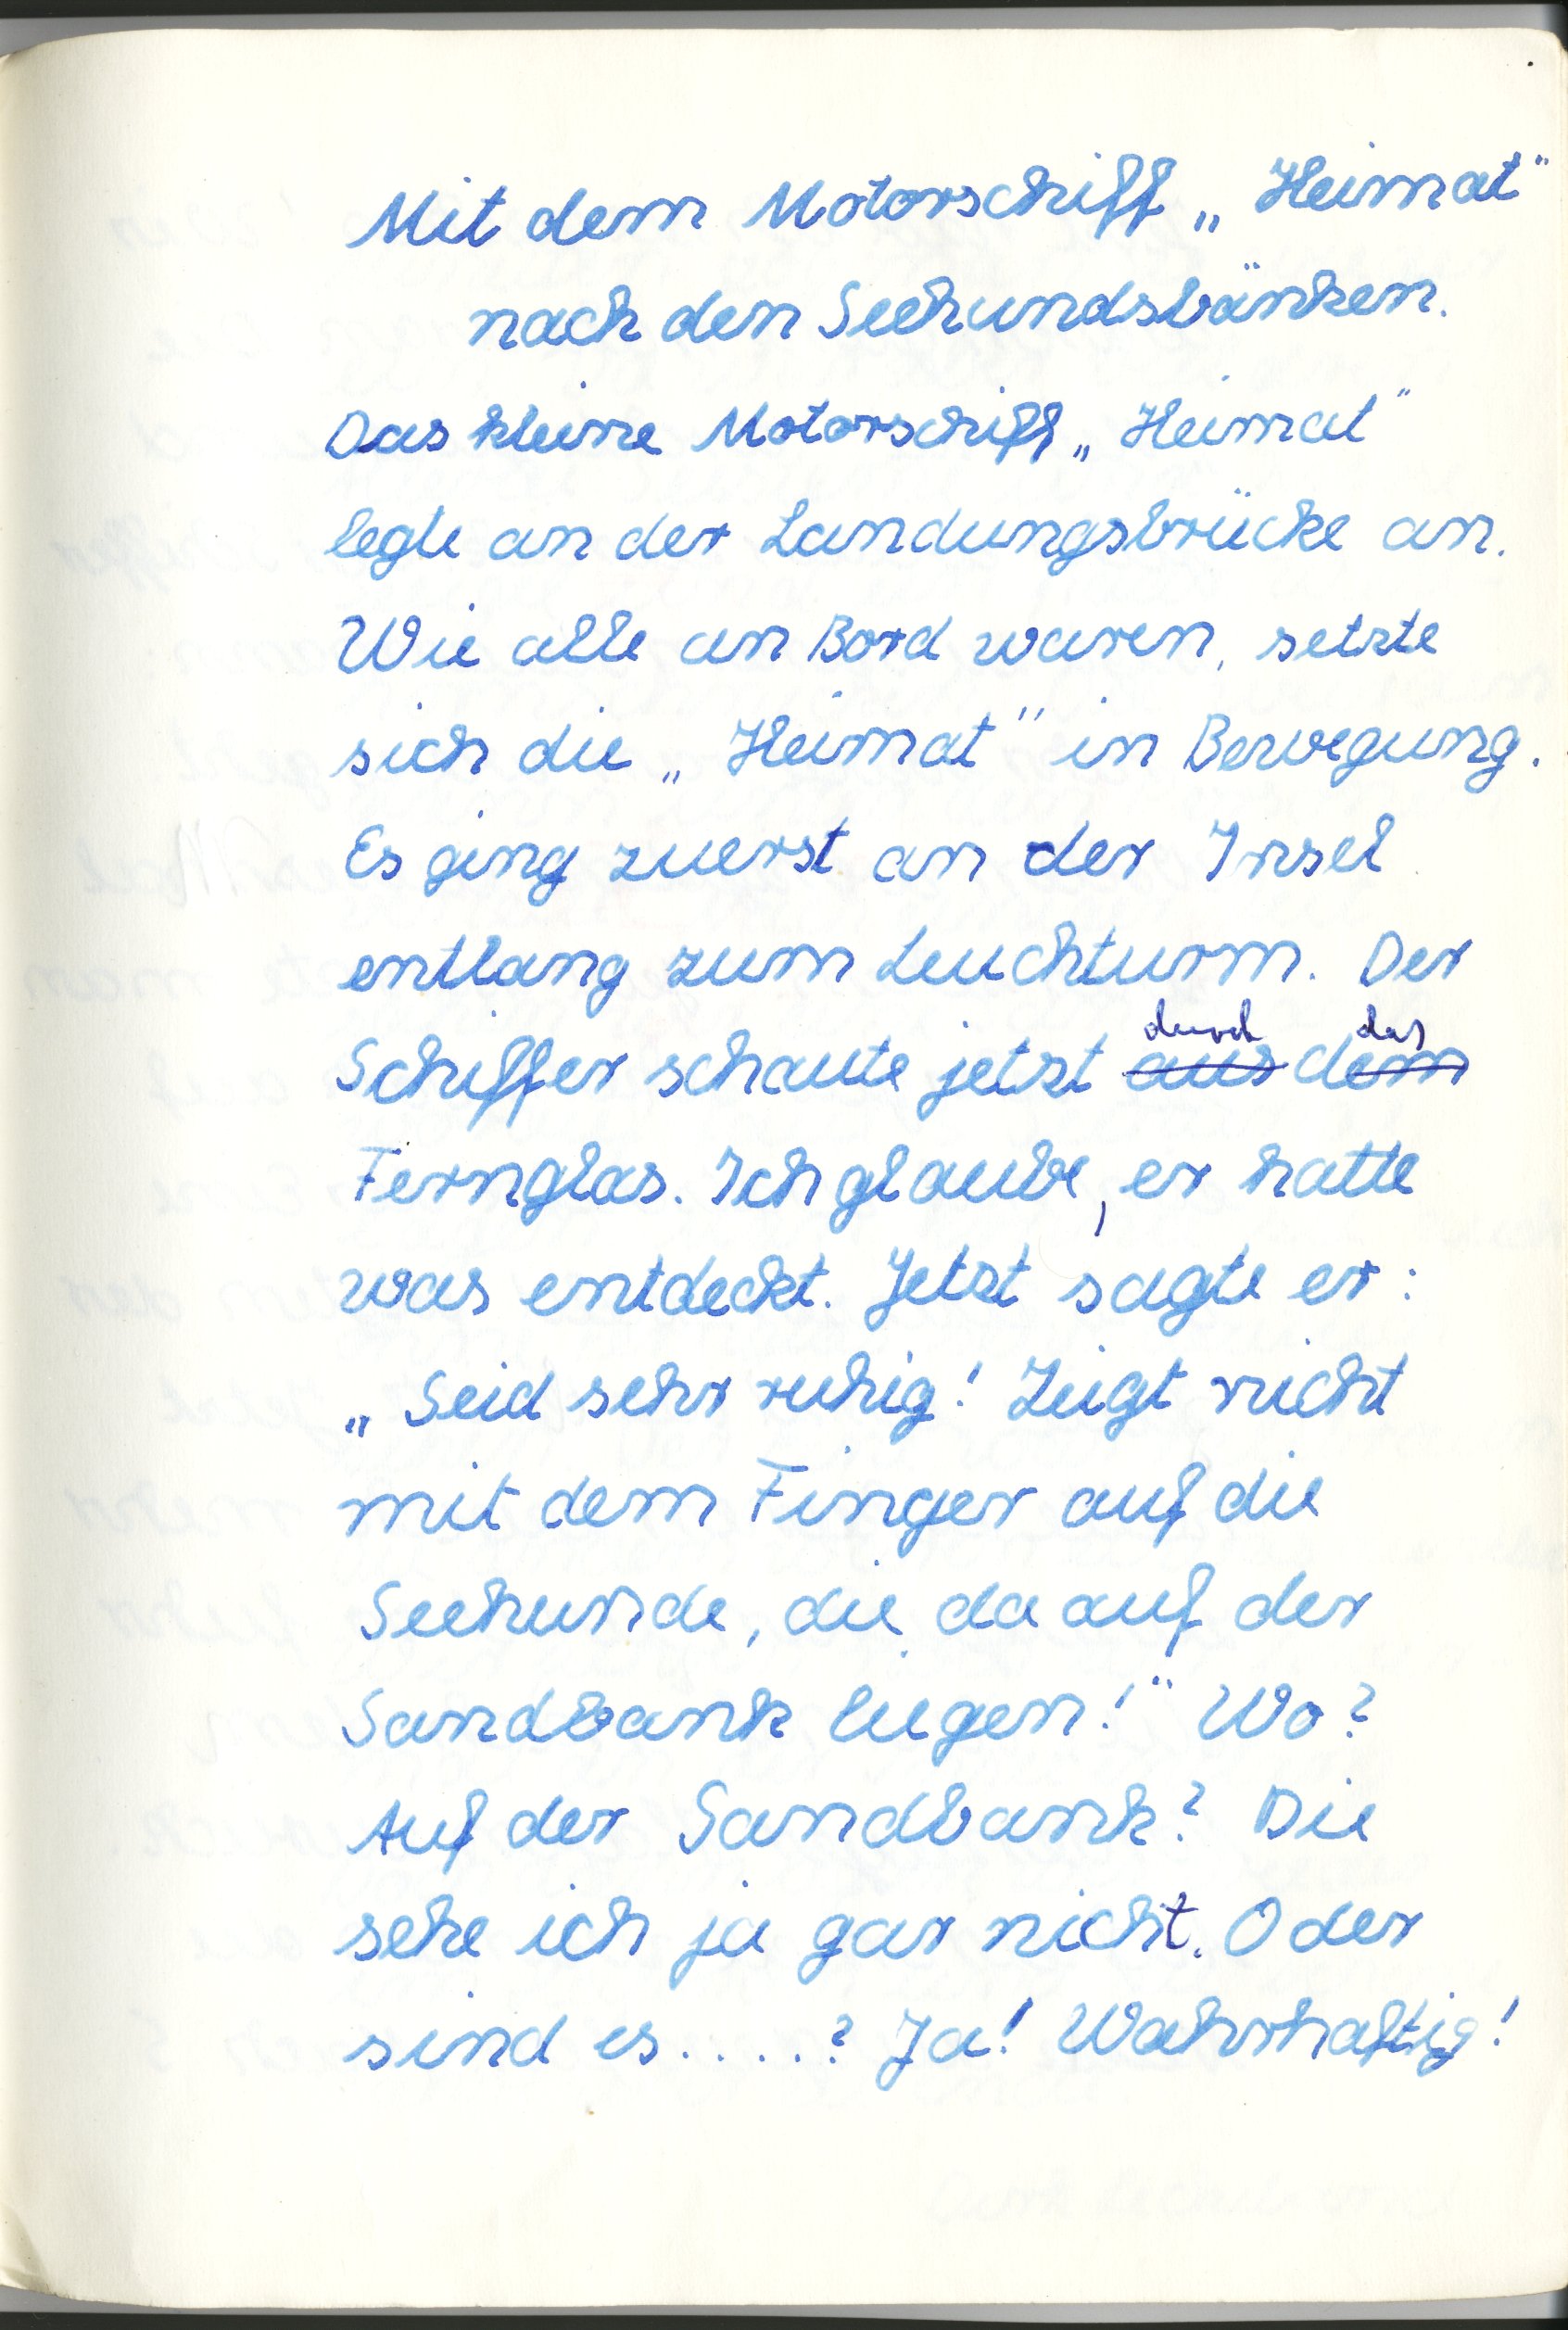 Mit dem Motorschiff „Heimat"
nach den Seehundsbänken.
Das kleine Motorschiff „Heimat"
legte an der Landungsbrücke an.
Wie alle an Bord waren, setzte
sich die „Heimat" in Bewegung.
Es ging zuerst an der Insel
entlang zum Leuchturm. Der
durch das
Schiffer schaute jetzt aus dem
Fernglas. Ich glaube, er hatte
was entdeckt. Jetzt sagte er:
„Seid sehr ruhig! Zeigt nicht
mit dem Finger auf die
Seehunde, die da auf der
Sandbank liegen!" Wo?
Auf der Sandbank? Die
sehe ich ja gar nicht. Oder
sind es.....? Ja! Wahrhaftig!